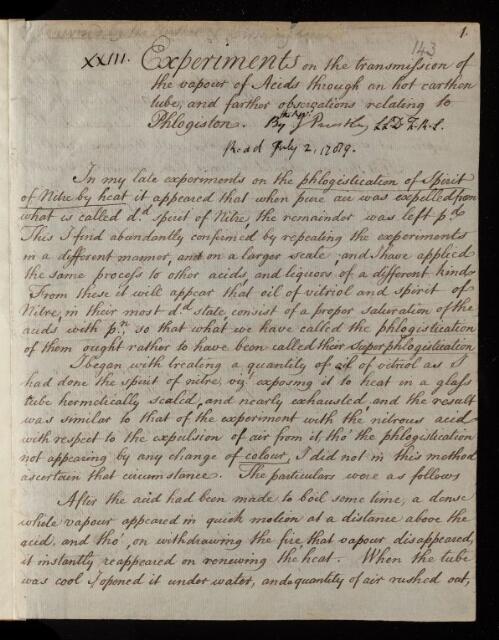 1.
143
XXIII. Experiments on the transmission of
the vapour of Acids through an hot earthen
tube, and farther observations relating to
Phlogiston. By the Revd. J Priestley LLD F.R.S.
Read July 2, 1789.
In my late experiments on the phlogistication of Spirit
of Nitre by heat it appeared that when pure air was expelled from
what is called d.d spirit of Nitre, the remainder was left p.d
This I find abundantly confirmed by repeating the experiments
in a different manner, and on a larger scale, and I have applied
the same process to other acids, and liquors of a different kind
From these it will appear that oil of vitriol and spirit of
Nitre, in their most d.d state, consist of a proper saturation of the
acids with p.n, so that what we have called the phlogistication
of them ought rather to have been called their superphlogistication
I began with treating a quantity of oil of vitriol as I
had done the spirit of nitre, viz. exposing it to heat in a glass
tube hermetically sealed, and nearly exhausted, and the result
was similar to that of the experiment with the nitrous acid
with respect to the expulsion of air from it, tho' the phlogistication
not appearing by any change of colour, I did not in this method
ascertain that circumstance. The particulars were as follows
After the acid had been made to boil some time, a dense
white vapour appeared in quick motion at a distance above the
acid, and tho', on withdrawing the fire that vapour disappeared,
it instantly reappeared on renewing the heat. When the tube
was cool I opened it under water, and a quantity of air rushed out,